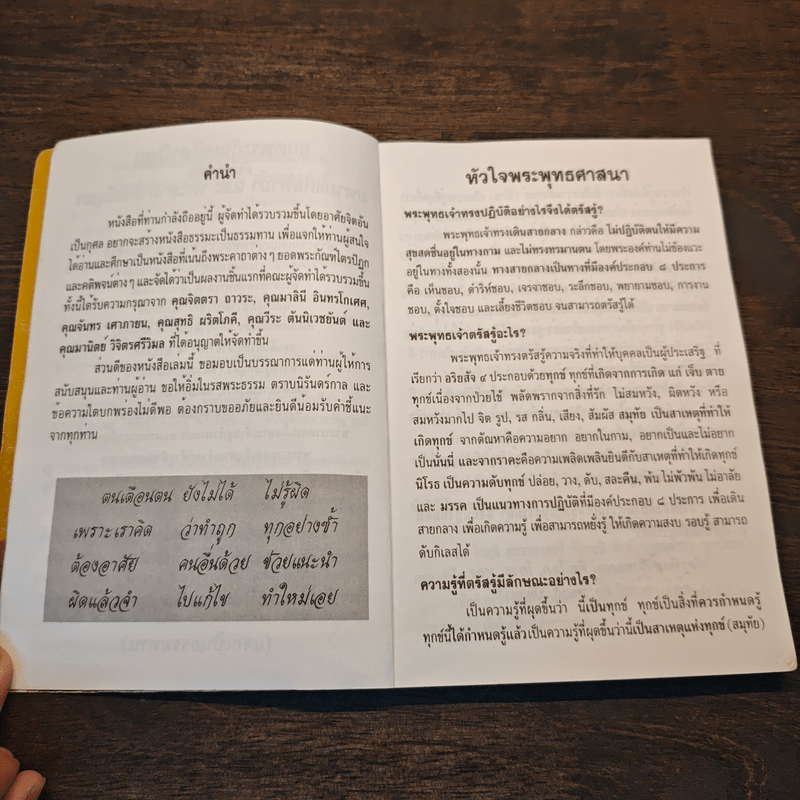 คำนำ
หนังสือที่ท่านกำลังถืออยู่นี้ ผู้จัดทำได้รวบรวมขึ้นโดยอาศัยจิตอัน
เป็นกุศล อยากจะสร้างหนังสือธรรมะเป็นธรรมทาน เพื่อแจกให้ท่านผู้สนใจ
ได้อ่านและศึกษาเป็นหนังสือที่เน้นถึงพระคาถาต่างๆ ยอดพระกัณฑ์ไตรปิฎก
และคติพจน์ต่างๆ และจัดได้ว่าเป็นผลงานชิ้นแรกที่คณะผู้จัดทำได้รวบรวมขึ้น
ทั้งนี้ได้รับความกรุณาจาก คุณจิตตรา ถาวระ, คุณมาลินี อินทรโกเศศ,
คุณจันทร เศาภายน, คุณสุทธิ ผริตโภคี, คุณวีระ ตันนิเวชยันต์ และ
คุณมานิตย์ วิจิตรศรีวิมล ที่ได้อนุญาตให้จัดทำขึ้น
ส่วนดีของหนังสือเล่มนี้ ขอมอบเป็นบรรณาการแด่ท่านผู้ให้การ
สนับสนุนและท่านผู้อ่าน ขอให้อิ่มในรสพระธรรม ตราบนิรันดรกาล และ
ข้อความใดบกพร่องไม่ดีพอ ต้องกราบขออภัยและยินดีน้อมรับคำชี้แนะ
จากทุกท่าน
ตนเตือนตน ยังไม่ได้ ไม่รู้ผิด
เพราะเราคิด ว่าทำถูก ทุกอย่างซ้ำ
ต้องอาศัย คนอื่นด้วย ช่วยแนะนำ
ผิดแล้วจำ ไปแก้ไข ทำใหม่เอย
หัวใจพระพุทธศาสนา
พระพุทธเจ้าทรงปฏิบัติอย่างไรจึงได้ตรัสรู้?
พระพุทธเจ้าทรงเดินสายกลาง กล่าวคือ ไม่ปฏิบัติตนให้มีความ
สุขสดชื่นอยู่ในทางกาม และไม่ทรงทรมานตน โดยพระองค์ท่านไม่ข้องแวะ
อยู่ในทางทั้งสองนั้น ทางสายกลางเป็นทางที่มีองค์ประกอบ ๘ ประการ
คือ เห็นชอบ, ดำริห์ชอบ, เจรจาชอบ, ระลึกชอบ, พยายามชอบ, การงาน
ชอบ, ตั้งใจชอบ และเลี้ยงชีวิตชอบ จนสามารถตรัสรู้ได้
พระพุทธเจ้าตรัสรู้อะไร?
พระพุทธเจ้าทรงตรัสรู้ความจริงที่ทำให้บุคคลเป็นผู้ประเสริฐ ที่
เรียกว่า อริยสัจ ๔ ประกอบด้วยทุกข์ ทุกข์ที่เกิดจากการเกิด แก่ เจ็บ ตาย
ทุกข์เนื่องจากป่วยไข้ พลัดพรากจากสิ่งที่รัก ไม่สมหวัง, ผิดหวัง หรือ
สมหวังมากไป จิต รูป, รส กลิ่น, เสียง, สัมผัส สมุทัย เป็นสาเหตุที่ทำให้
เกิดทุกข์ จากตัณหาคือความอยาก อยากในกาม, อยากเป็นและไม่อยาก
เป็นนั่นนี่ และจากราคะคือความเพลิดเพลินยินดีกับสาเหตุที่ทำให้เกิดทุกข์
นิโรธ เป็นความดับทุกข์ ปล่อย, วาง, ดับ, สละคืน, พ้น ไม่พัวพัน ไม่อาลัย
และ มรรค เป็นแนวทางการปฏิบัติที่มีองค์ประกอบ ๘ ประการ เพื่อเดิน
สายกลาง เพื่อเกิดความรู้ เพื่อสามารถหยั่งรู้ ให้เกิดความสงบ รอบรู้ สามารถ
ดับกิเลสได้
ความรู้ที่ตรัสรู้มีลักษณะอย่างไร?
เป็นความรู้ที่ผุดขึ้นว่า นี้เป็นทุกข์ ทุกข์เป็นสิ่งที่ควรกำหนดรู้
ทุกข์นี้ได้กำหนดรู้แล้วเป็นความรู้ที่ผุดขึ้นว่านี้เป็นสาเหตุแห่งทุกข์ (สมุทัย)